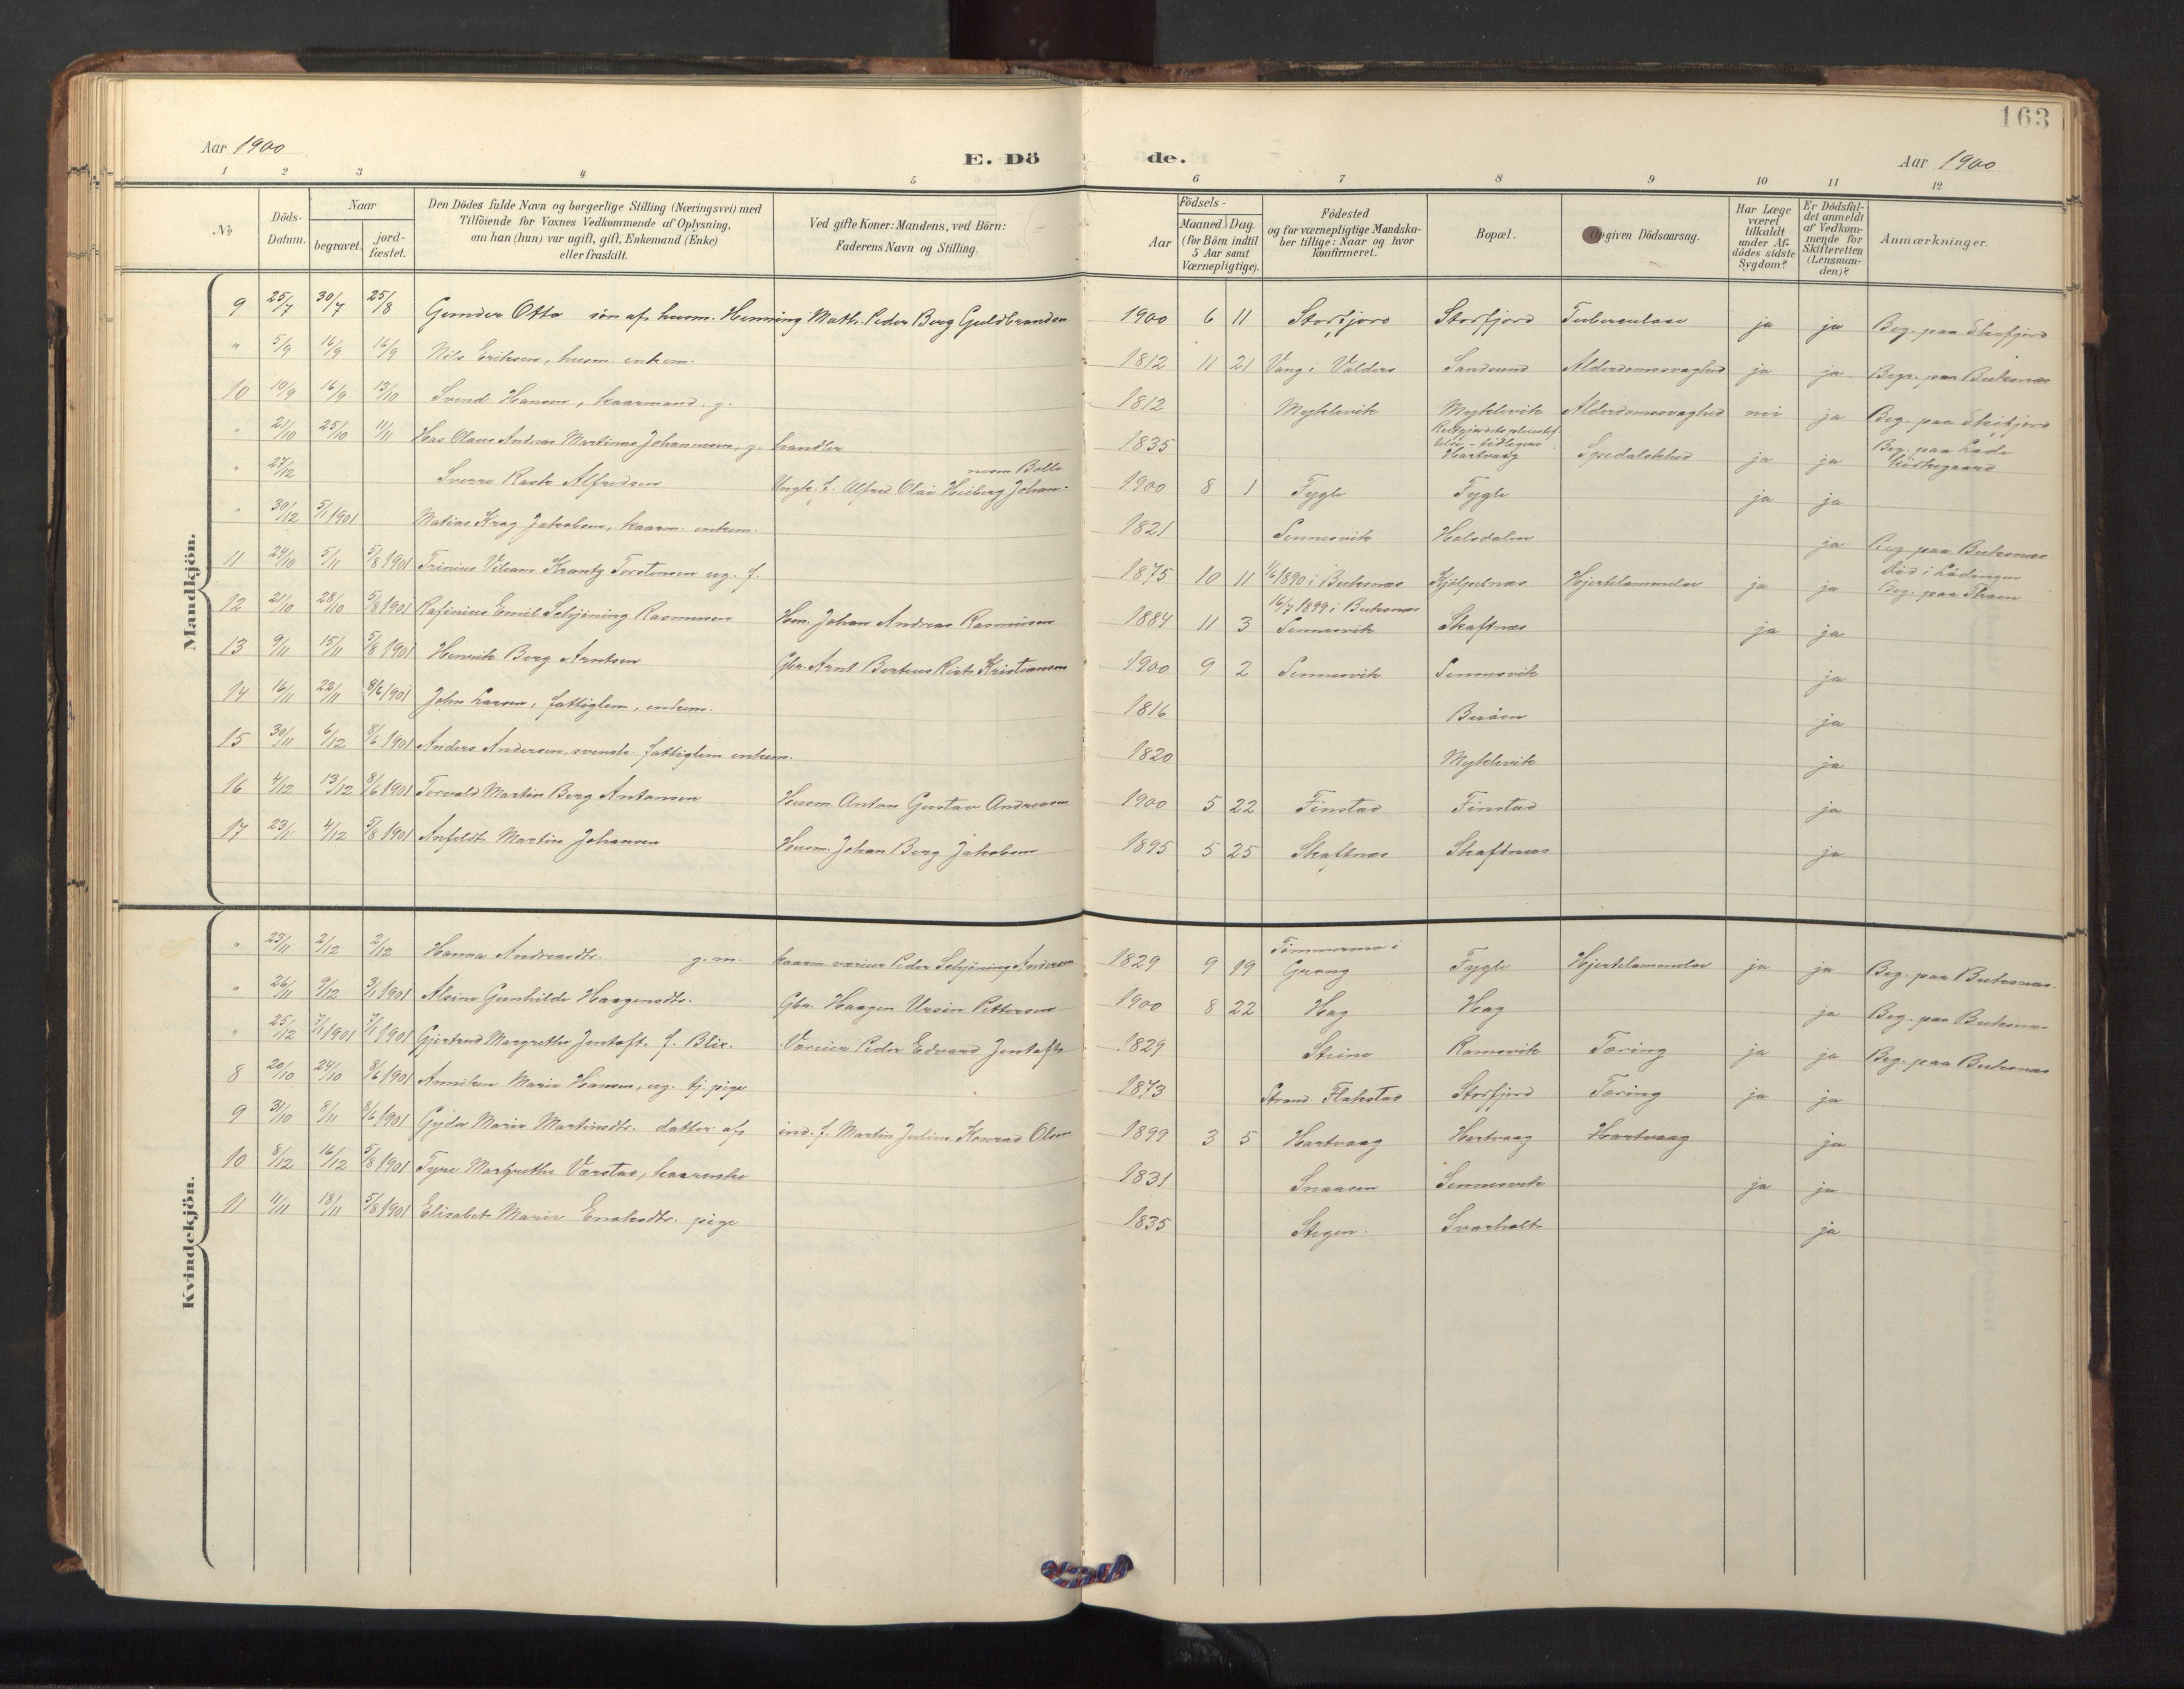 163
Aar 1900
E. Dö de.
Aar 1900
1 2 3 4 5 6 7 8 9 10 11 12
№
Döds-Datum.
Naar
begravet.
jord-fæstet.
Den Dödes fulde Navn og borgerlige Stilling (Næringsvei) med
Tilföiende for Voxnes Vedkommende af Oplysning,
om han (hun) var ugift, gift, Enkemand (Enke)
eller fraskilt.
Ved gifte Koner: Mandens, ved Börn:
Faderens Navn og Stilling.
Aar
Födsels-
Maaned. Dag.
(for Börn indtil
5 Aar samt
Værnepligtige).
Födested
og for værnepligtige Mandska-
ber tillige: Naar og hvor
konfirmeret.
Bopæl.
Opgiven Dödsaarsag.
Har Læge
været
tilkaldt
under Af-
dödes sidste
Sygdom?
Er Dödsfal-
det anmeldt
af Vedkom-
mende for
Skifteretten
(Lensman-
den)?
Anmærkninger.
Mandkjön.
9 25/7 30/7 25/8 Gunder Otto sön af husm. Henning Math. Peder Berg Guldbrandsen 1900 6 11 Storfjord Storfjord Tuberculose ja ja Beg. paa Skifjord
" 5/9 16/9 16/9 Nils Eriksen, husm. enkem. 1812 11 21 Vang i Valders Sandsund Alderdomssvaghed ja ja Begr. paa Buksnæs
10 10/9 16/9 13/10 Svend Hansen, kaarmand. g. 1812 Myklevik Myklevik Alderdomssvaghed nei ja Beg. paa Skifjord
" 21/10 25/10 11/11 Olaus Andreas Martinus Johannesen, g. handler 1835 Hartvaag Spedalskhed ja ja Beg. paa Lade kirkegaard
" 27/12 Sverre Rask Alfredsen Ungk. f. Alfred Olai Heiberg Johan-nesen Bolle 1900 8 1 Fygle Fygle ja ja
" 30/12 5/1 1901 Matias Krag Jakobsen, kaarm. enkem. 1821 Sennesvik Halsdalen ja Beg. paa Buksnæs
11 24/10 5/11 5/8 1901 Trinius Viliam Krantz Torstensen ug. f. 1875 10 11 1/6 1890 i Buksnæs Kjölpelnæs Hjertelammelse ja ja Död i Lödingen Beg. paa
12 21/10 28/10 5/8 1901 Rafinius Emil Schjöning Rasmussen Hsm. Johan Andreas Rasmussen 1884 11 3 16/7 1899 i Buksnæs Sennesvik Skaftnæs ja ja
13 9/11 15/11 5/8 1901 Henrik Berg Arntsen Gbr. Arnt Berteus Rist Kristiansen 1900 9 2 Sennesvik Sennesvik ja
14 16/11 22/11 8/6 1901 John Larsen, fattiglem, enkem. 1816 ja
15 30/11 6/12 8/6 1901 Anders Andersen, svensk. fattiglem enkem. 1820 Myklevik ja
16 4/12 13/12 8/6 1901 Torvald Martin Berg Antonsen Husm. Anton Gustav Andreasen 1900 5 22 Finstad Finstad ja
17 23/11 4/12 5/8 1901 Anfeldt Martin Johansen Husm. Johan Berg Jakobsen 1895 5 25 Skaftnæs Skaftnæs ja
Kvindekjön.
" 23/11 2/12 2/12 Hanna Andreasdtr. g. m. kaarm. værier Peder Schjöning Andersen 1829 9 19 Tömmermo i Grong Fygle Hjertelammelse ja ja Beg. paa Buksnæs.
" 26/11 9/12 3/1 1901 Alsine Gunhilde Haagensdtr. Gbr. Haagen Ursin Pettersen 1900 8 22 Hag Hag ja Beg. paa Buksnæs
" 25/12 7/1 1901 7/1 1901 Gjertrud Margrethe Jentoft, f. Blix. Værier Peder Edvard Jentoft 1829 Steine Ramsvik Tæring ja ja Beg. paa Buksnæs
8 20/10 24/10 8/6 1901 Anniken Marie Hansen, ug. tj. pige 1873 Strand. Flakstad Storfjord Tæring ja ja
9 31/10 8/11 8/6 1901 Gyda Marie Martinsdtr. datter af ind. f. Martin Julius Konrad Olsen 1899 3 5 Hartvaag Hartvaag Hartvaag ja
10 8/12 16/12 5/8 1901 Margrethe Værstad, kaarenke 1831 Snaasen Sennesvik ja ja
11 11/11 18/11 5/8 1901 Elisabet Marie Enoksdtr. pige 1835 Stegen. Svarholt ja